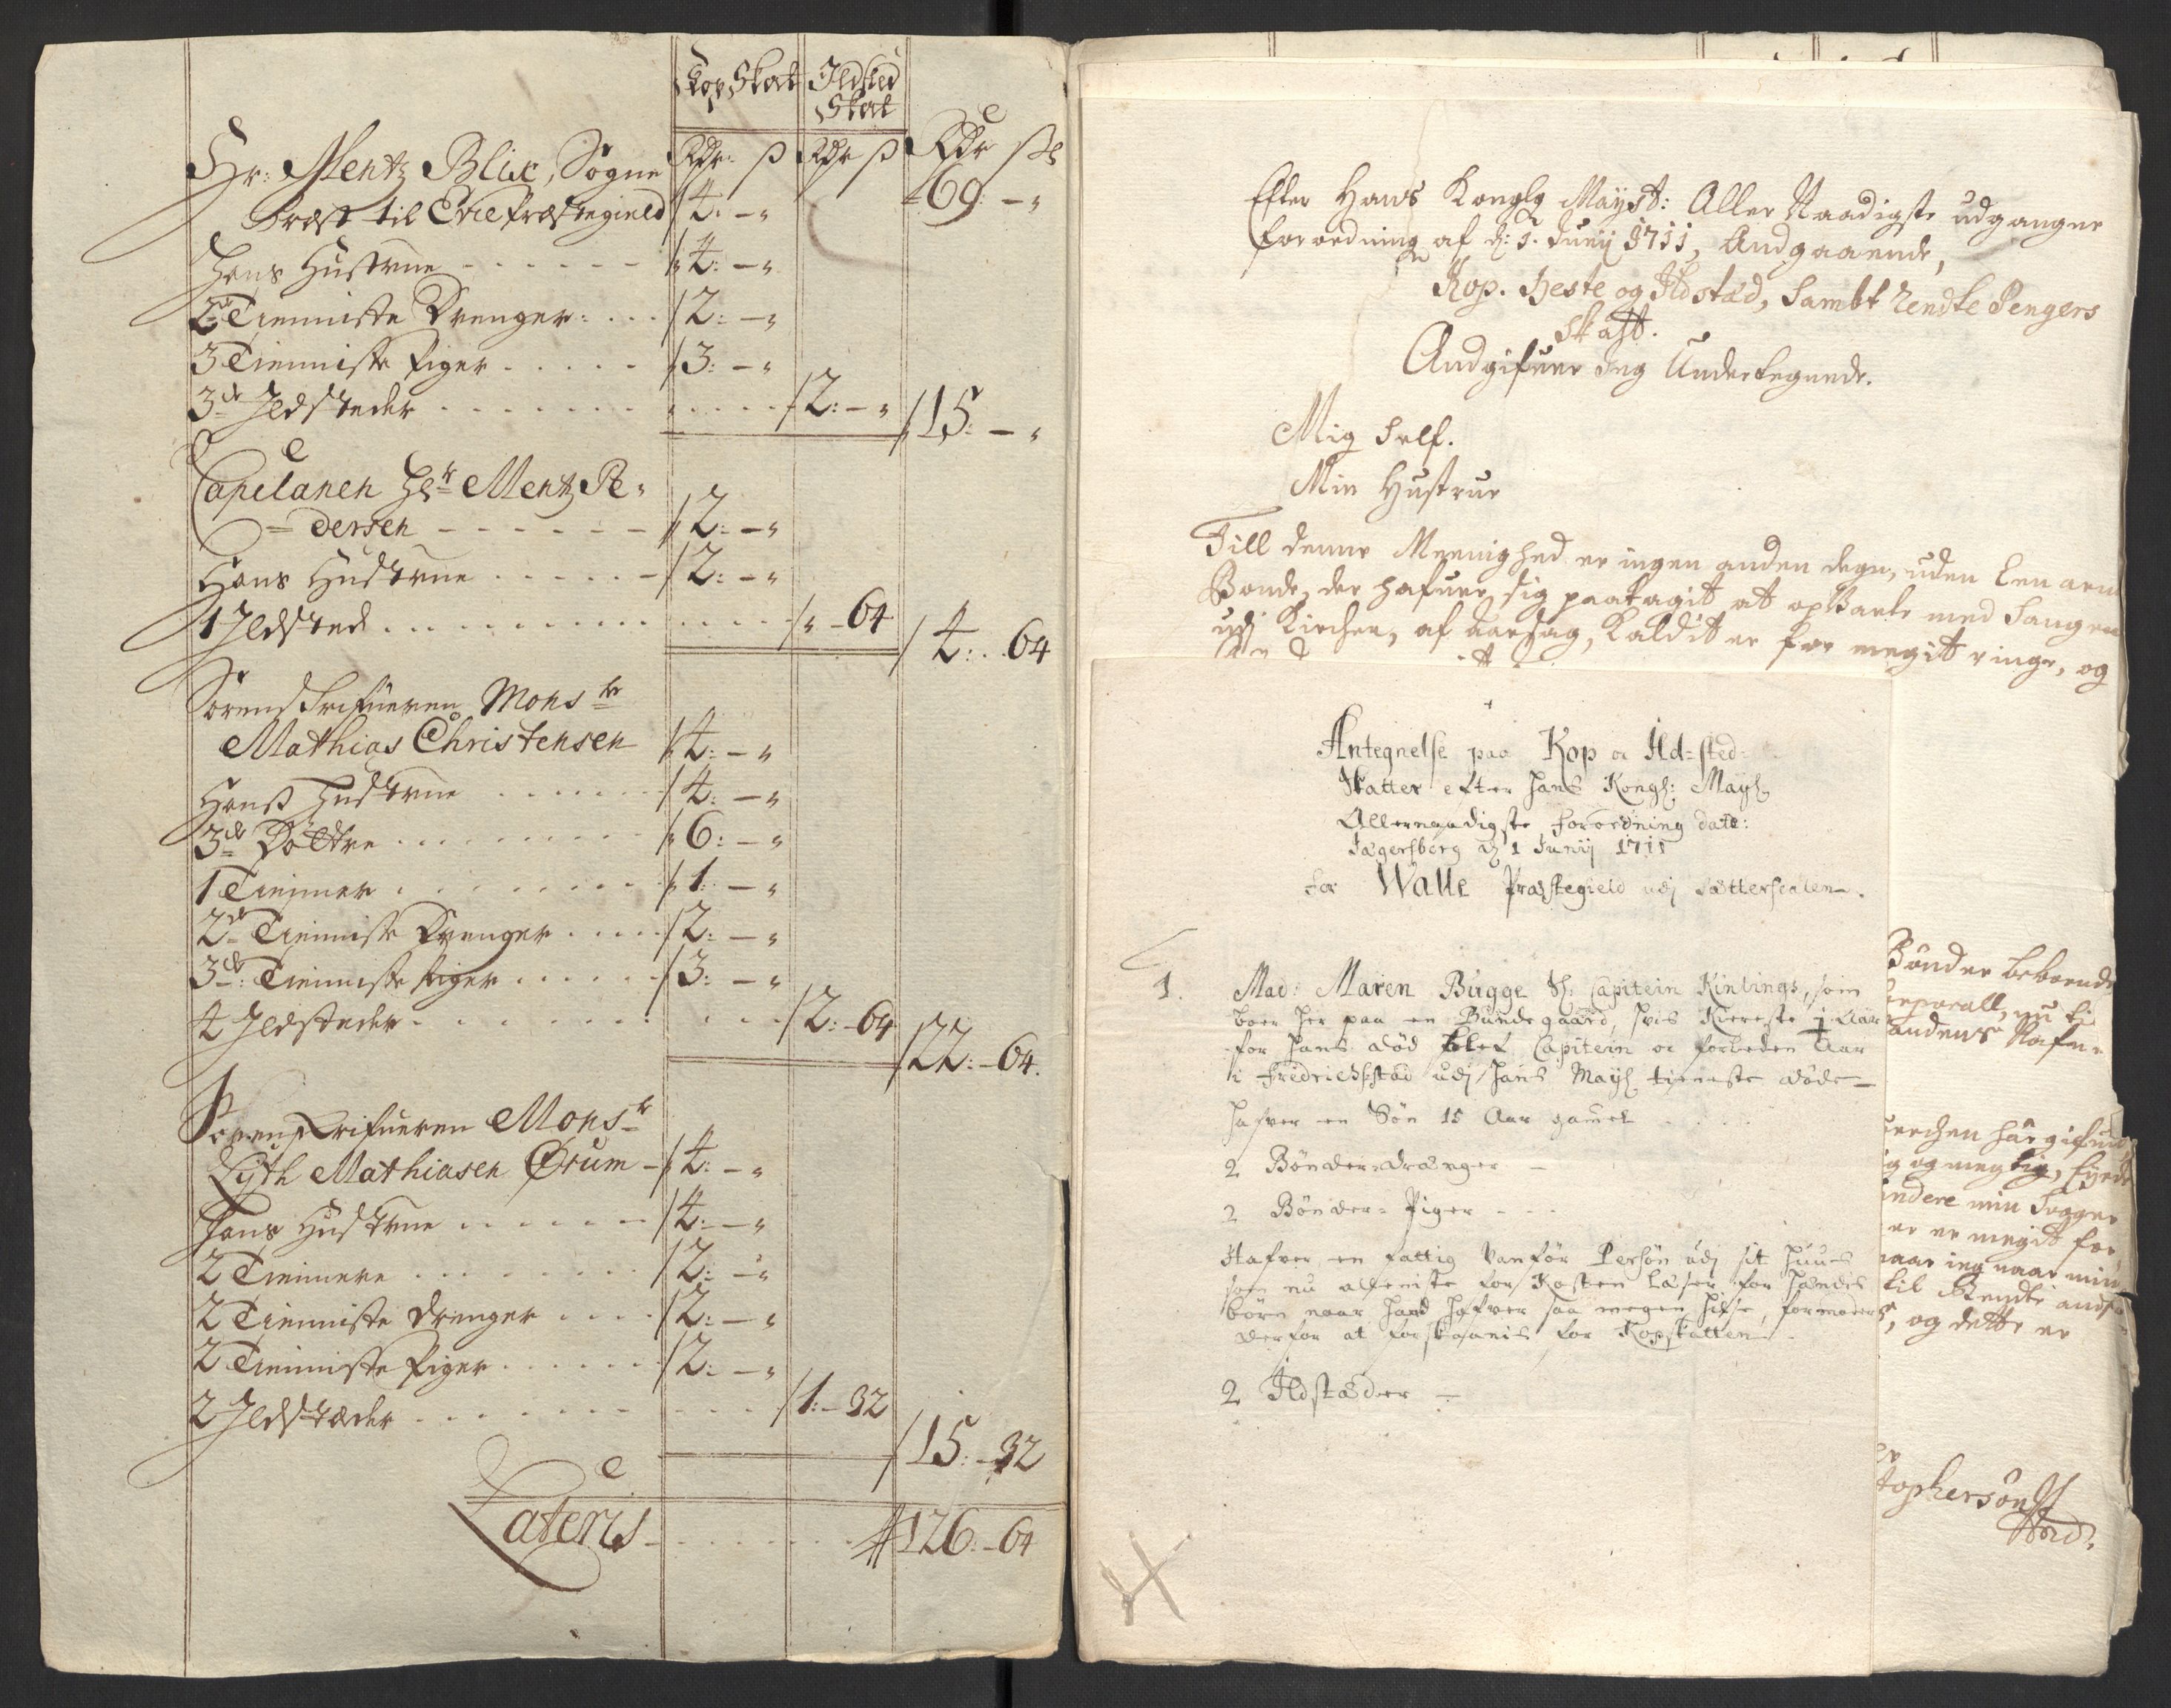 Kop Skat Ildsted
Skat
Rdr: ß Rdr ß Rdr ß
69 - "
Hr: Mentz Blix, Sogne
Præst til Evie Præstegield 4: - "
Hans Hustrue 4: - "
2de Tienniste Drenger 2: - "
3 Tienniste Piger 3: - "
3de Ildsteder 2: - " 15: - "
Capelanen Hr Mentz Pe-
dersen 2: - "
Hans Hustrue 2: - "
1 Ildsted " - 64 4: 64
Sorenskrifueren Monsr
Mathias Christensen 4: - "
Hanß Hustrue 4: - "
3de Döttre 6: - "
1 Tienner 1: - "
2de Tienniste Drenger 2: - "
3de: Tienniste Piger 3: - "
4 Ildsteder 2: - 64 22: - 64.
Sorenskrifueren Monsr
Lyth Mathiasen Ørum 4: - "
Hans Hustrue 4: - "
2 Tiennere 2: - "
2 Tienniste Drenger 2: - "
2 Tienniste Piger 2: - "
2 Ildstæder 1: - 32 15: - 32
Lateris 126: - 64
Efter Hans Konglg Mayst: Aller Naadigste udgangne
forordning af d: 1. Junij 1711, Andgaaende,
Kop. Heste og Ildstæd, sambt rendte Pengers
skatt.
Andgifuer Jeg Undertegnede.
Mig self.
Min Hustrue
Till denne Meenighed er ingen anden degn, uden Een arm
Bonde, der hafuer sig paatagit at opvarte med sangen
udj Kirchen, af aarsag, Kaldit er for megit ringe, og
Antegnelse paa Kop oc Ild-sted-
Skatter efter Hans Kongl: Mayt
Allernaadigste forordning date:
Jægersborg d 1 Junij 1711
for Walle Præstegield udj Sættersdalen.
1. Mad: Maren Bugge Sl: Capitein Kinlings, som
boer her paa en Bundegaard, hvis Kiereste 1 Aar
for hans død blef Capitein oc forleden Aar
i Fredrichsstad udj Hans Mayt tieneste døde -
hafver en Søn 15 Aar gamel
2 Bønder-drænger -
2 Bønder-Piger - - -
Hafver en fattig vanför Persön udj sit huus
som nu alleniste for Kosten læser for hændes
börn naar hand hafver saa megen hilse, formodes
derfor at forskaanis for Kopskatten
2 Ildstæder -
Bønder beboende
andens Nafn
kierchen har gifuen
ig og megtig, fyrde
indere min Sogne
er er megit for
naar ieg naar min
til Rendte andf
, og dette er
tophersön